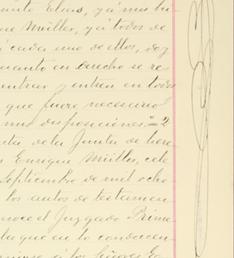 Elias, y á mis hi
Müller, y á todos de
cada uno de ellos, doy
cuanto en derecho se re
entrar y entren en todos
que fuere necesario
mis disposiciones.
de la Junta de here
Enrique Müller, cele
Septiembre de mil ocho
los autos de testamen
noce el Juzgado Prime
que en lo conducen